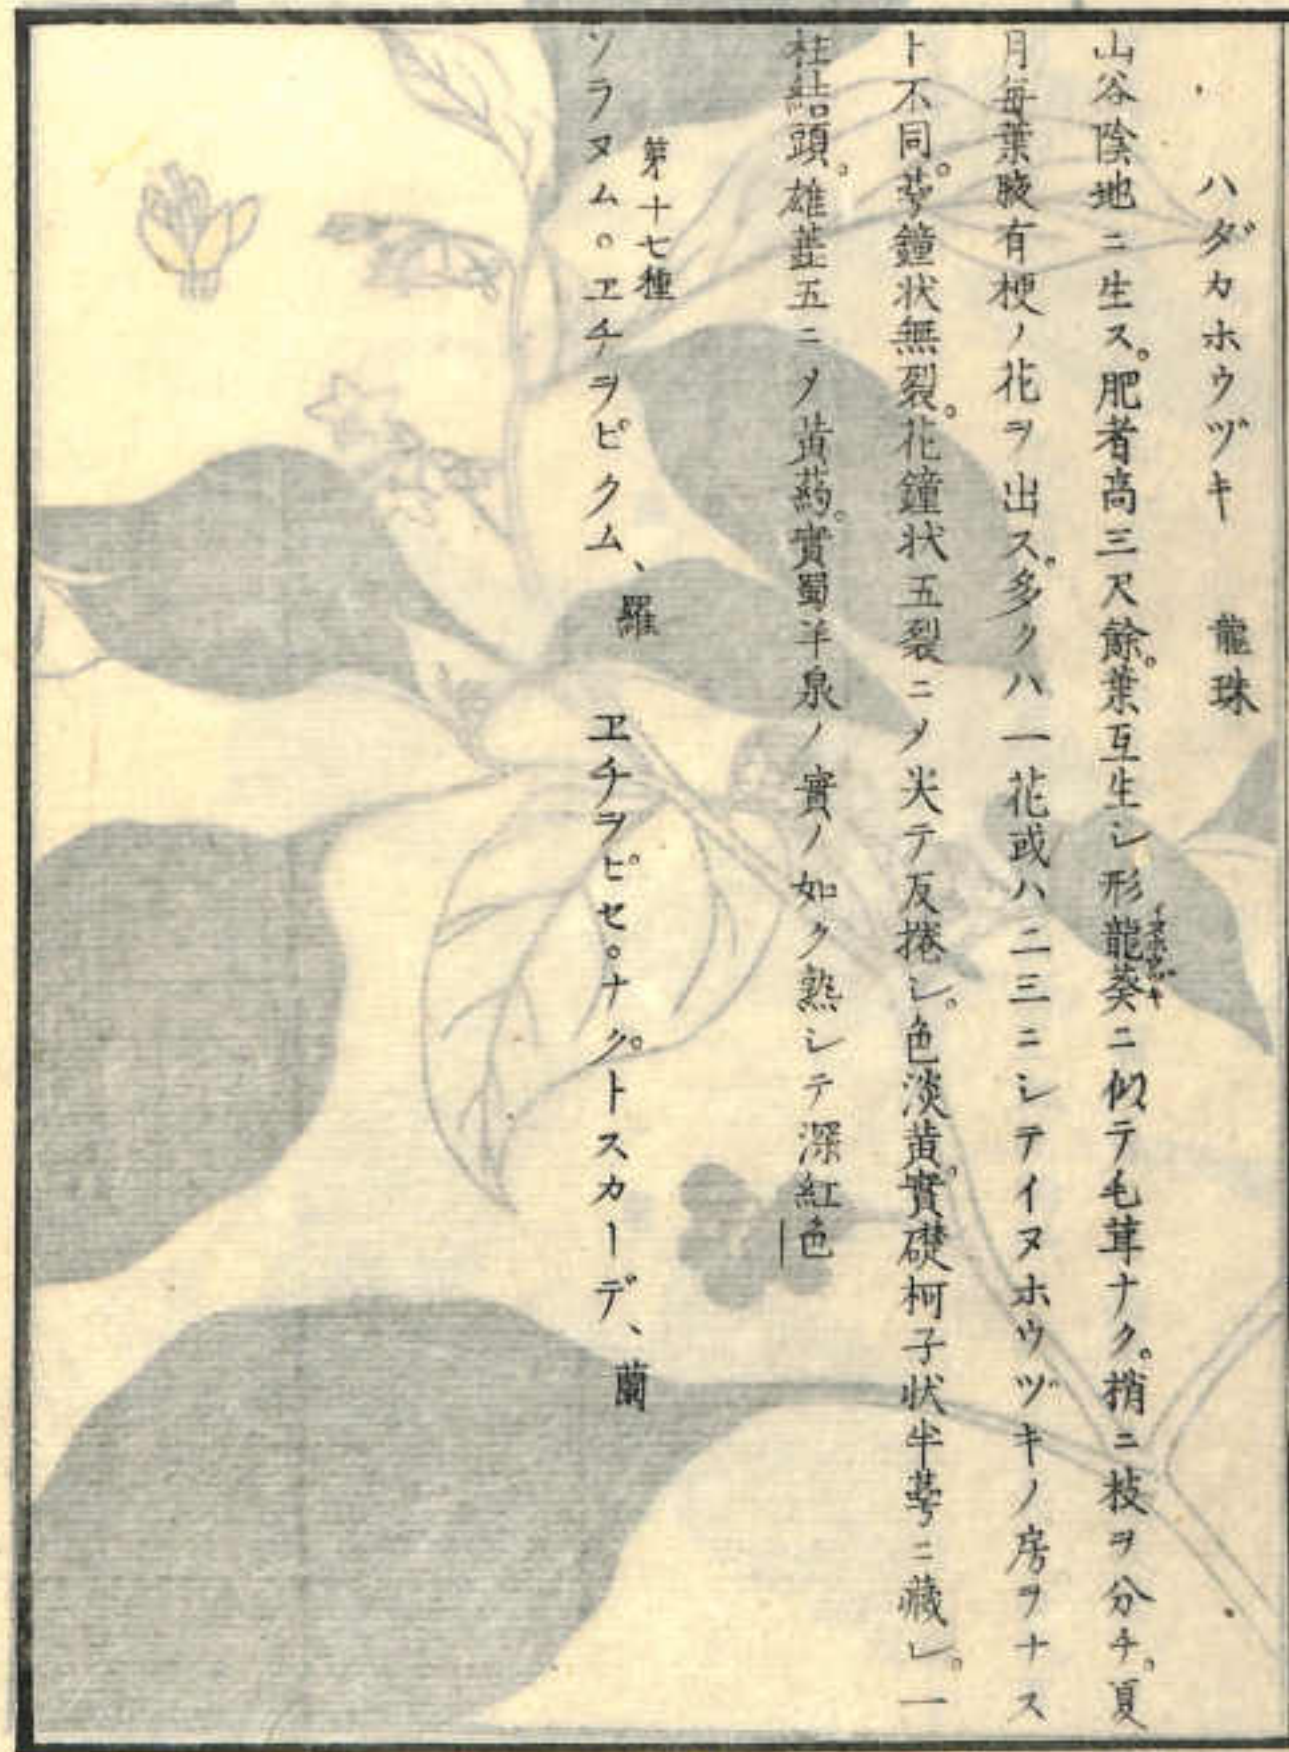 ハダカホウヅキ　龍珠
山谷陰地ニ生ス。肥者高三尺餘。葉互生シ形龍葵ニ似テ毛茸ナク。梢ニ枝ヲ分チ。夏
イヌホウヅキ
月毎葉腋有梗ノ花ヲ出ス。多クハ一花或ハ二三ニシテイヌホウヅキノ房ヲナス
ト不同。萼鐘状無裂。花鐘状五裂ニメ尖テ反捲シ。色淡黄。實礎柯子状半萼ニ藏シ。一
柱結頭。雄蕋五ニメ黄葯。實蜀羊泉ノ實ノ如ク熟シテ深紅色
第十七種
ソラヌム。ヱチヲピクム、羅　ヱチヲピセ。ナクトスカーデ、蘭